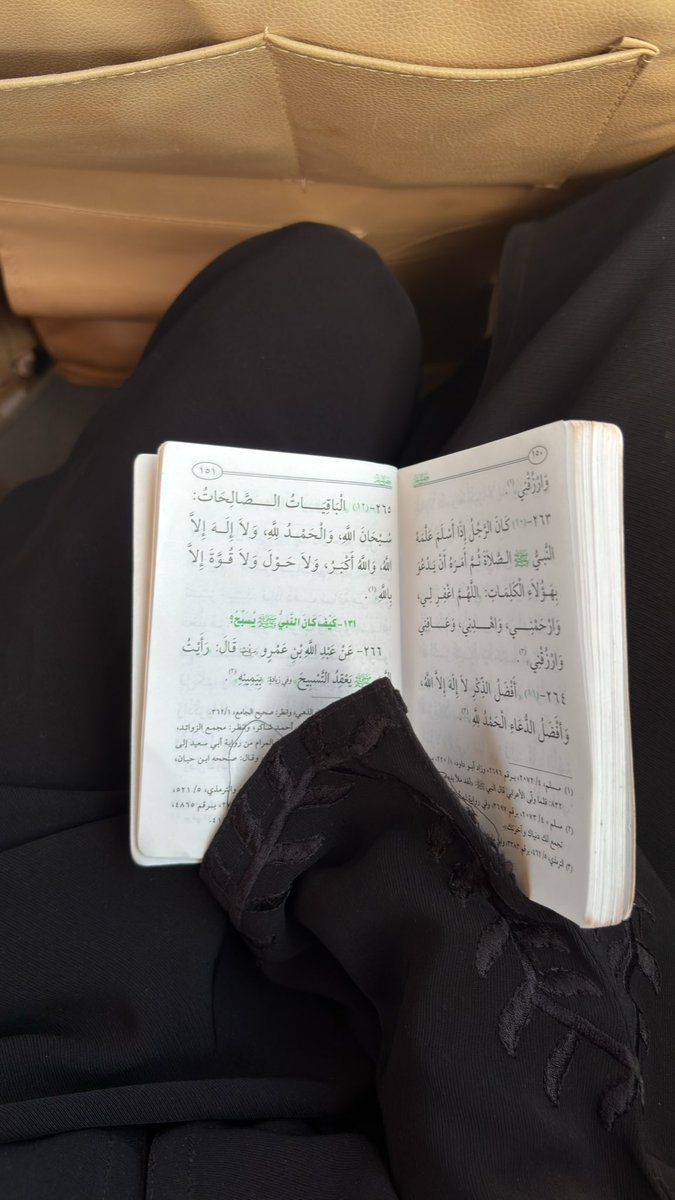 ١٥٠
وَارْزُقْنِي»(١).
٢٦٣-(١٠) كَانَ الرَّجُلُ إِذَا أَسْلَمَ عَلَّمَهُ
النَّبِيُّ ﷺ الصَّلاَةَ ثُمَّ أَمَرَهُ أَنْ يَدْعُوَ
بِهَؤُلاَءِ الْكَلِمَاتِ: «اللَّهُمَّ اغْفِرْ لِي،
وَارْحَمْنِي، وَاهْدِنِي، وَعَافِنِي
وَارْزُقْنِي»(٢).
٢٦٤-(١١) «أَفْضَلُ الذِّكْرِ لاَ إِلَهَ إِلاَّ اللهُ،
وَأَفْضَلُ الدُّعَاءِ الْحَمْدُ لِلَّهِ»(٣).
(١) مسلم، ٤/ ٢٠٧٢، برقم ٢٦٩٦، وزاد أبو داود، ١/ ٢٢٠،
٨٣٢: فلما ولَّى الأعرابي قال النبي ﷺ: «لقد ملأ يديه
(٢) مسلم، ٤/ ٢٠٧٣، برقم ٣٦٩٧، وفي رواية
تجمع لك دنياك وآخرتك».
(٣) الترمذي، ٥/ ٤٦٢، برقم ٣٣٨٣،
١٥١
٢٦٥-(١٢) «الْبَاقِيَاتُ الصَّالِحَاتُ:
سُبْحَانَ اللَّهِ، وَالْحَمْدُ لِلَّهِ، وَلاَ إِلَهَ إِلاَّ
اللهُ، وَاللهُ أَكْبَرُ، وَلاَ حَوْلَ وَلاَ قُوَّةَ إِلاَّ
بِاللَّهِ»(١).
١٣١- كَيْفَ كَانَ النَّبِيُّ ﷺ يُسَبِّحُ؟
٢٦٦- عَنْ عَبْدِ اللَّهِ بْنِ عَمْرٍو قَالَ: «رَأَيْتُ
ﷺ يَعْقِدُ التَّسْبِيحَ» وفي زيادةٍ: «بِيَمِينِهِ»(٢).
الذهبي، وانظر: صحيح الجامع، ١/ ٣٦٢،
أحمد شاكر، وانظر: مجمع الزوائد،
المرام من رواية أبي سعيد إلى
وقال: صححه ابن حبان،
والترمذي، ٥/ ٥٢١،
برقم ٤٨٦٥،